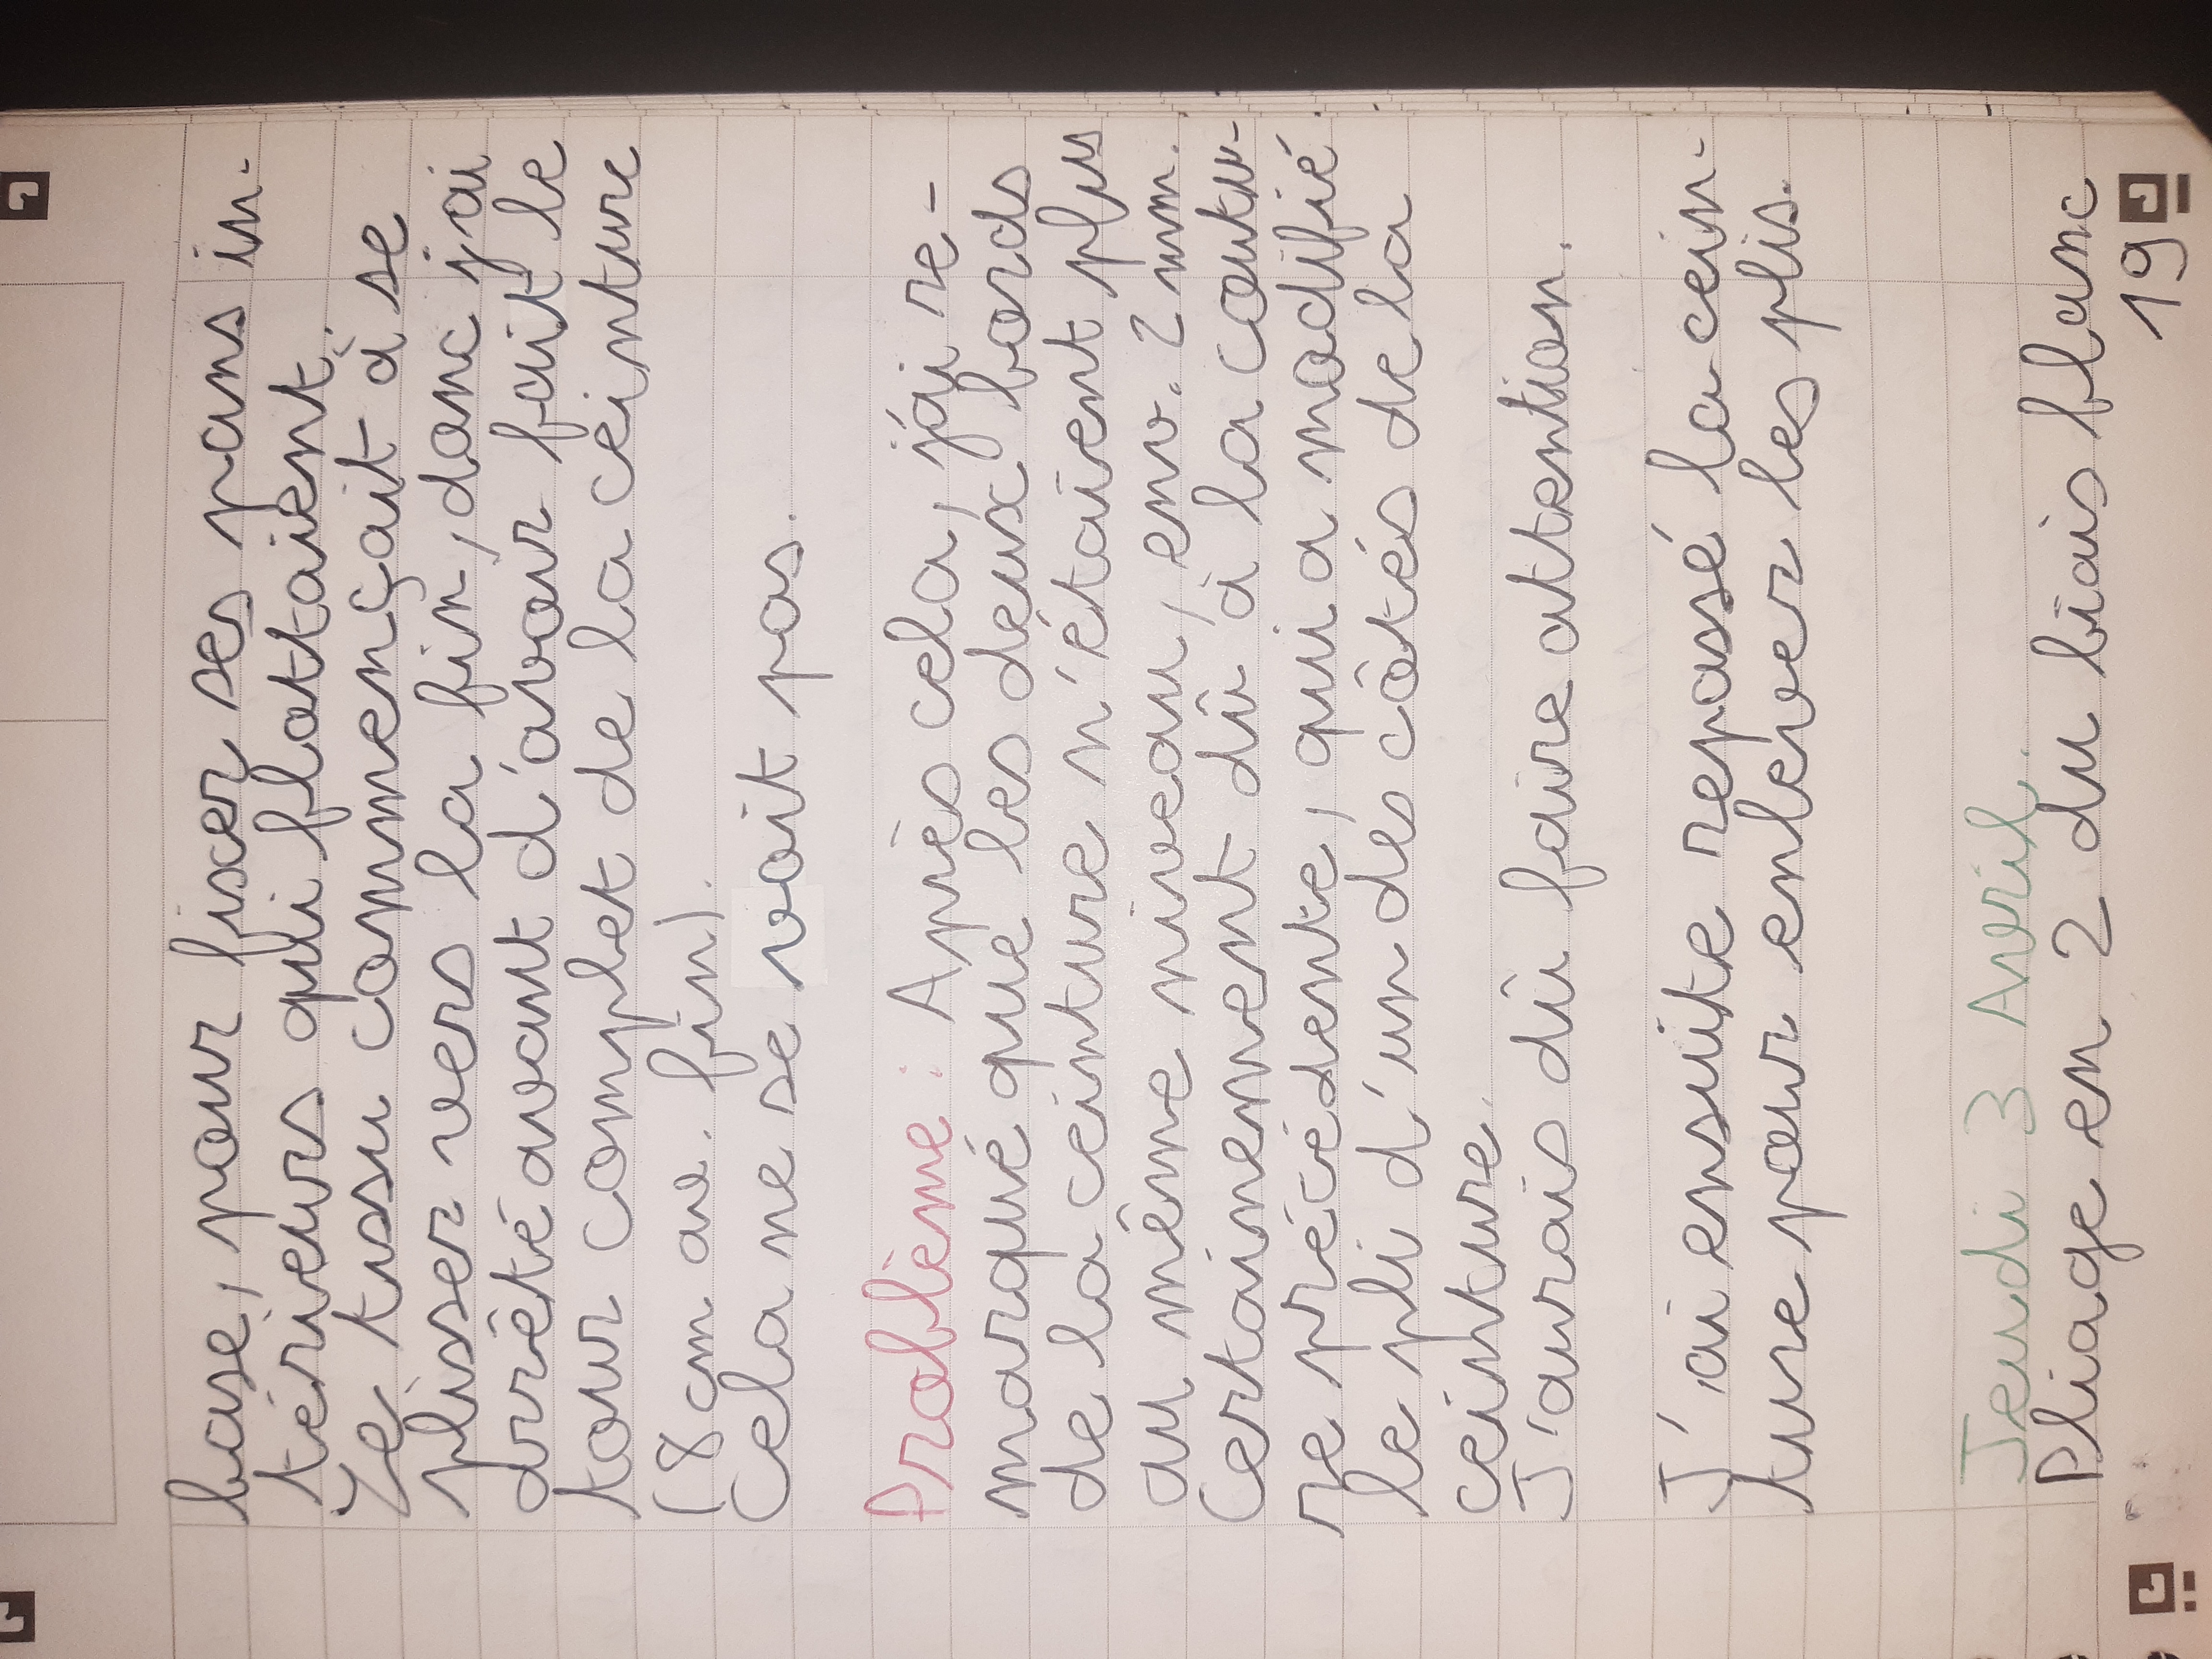 base, pour fixer ses pans in-
térieurs qui flottaient.
Le tissu commençait à se
plisser vers la fin, donc j'ai
arrêté avant d'avoir fait le
tour complet de la ceinture
(8 cm av. fin).
Cela ne se voit pas.
Problème : Après cela, j'ai re-
marqué que les deux bords
de la ceinture n'étaient plus
au même niveau, env. 2 mm.
Certainement dû à la coutu-
re précédente, qui a modifié
le pli d'un des côtés de la
ceinture.
J'aurais dû faire attention.
J'ai ensuite repassé la cein-
ture pour enlever les plis.
Jeudi 3 Avril.
Pliage en 2 du biais blanc
19